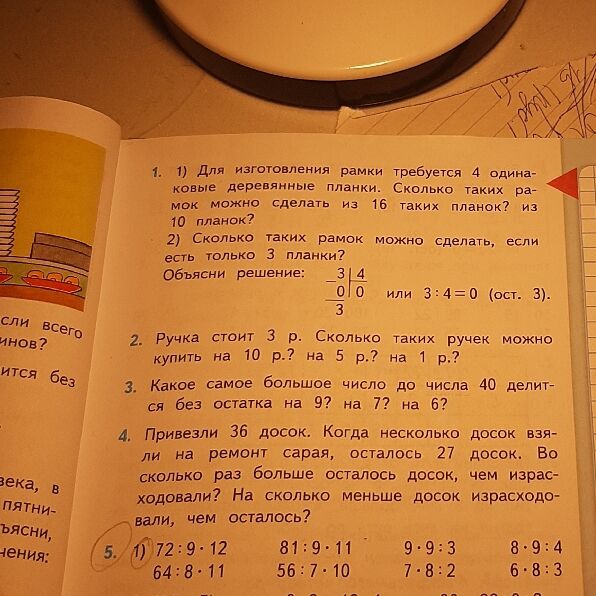 1. 1) Для изготовления рамки требуется 4 одина-
ковые деревянные планки. Сколько таких ра-
мок можно сделать из 16 таких планок? из
10 планок?
2) Сколько таких рамок можно сделать, если
есть только 3 планки?
Объясни решение:
3 4
0 0
3
или 3 : 4 = 0 (ост. 3).
2. Ручка стоит 3 р. Сколько таких ручек можно
купить на 10 р.? на 5 р.? на 1 р.?
3. Какое самое большое число до числа 40 делит-
ся без остатка на 9? на 7? на 6?
4. Привезли 36 досок. Когда несколько досок взя-
ли на ремонт сарая, осталось 27 досок. Во
сколько раз больше осталось досок, чем израс-
ходовали? На сколько меньше досок израсходо-
вали, чем осталось?
5. 1) 72 : 9 · 12 81 : 9 · 11 9 · 9 : 3 8 · 9 : 4
64 : 8 · 11 56 : 7 · 10 7 · 8 : 2 6 · 8 : 3
сли всего
инов?
ится без
века, в
пятни-
ъясни,
чения: